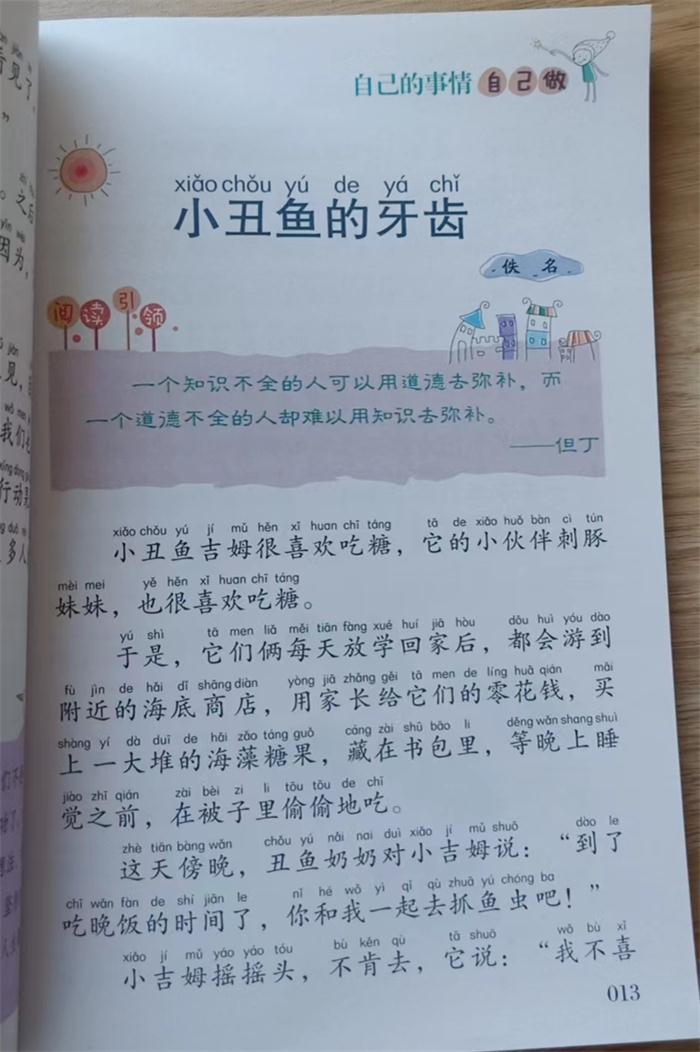 自己的事情自己做
xiǎo chǒu yú de yá chǐ
小丑鱼的牙齿
佚名
阅读引领
一个知识不全的人可以用道德去弥补，而
一个道德不全的人却难以用知识去弥补。
——但丁
xiǎo chǒu yú jí mǔ hěn xǐ huan chī táng tā de xiǎo huǒ bàn cì tún
小丑鱼吉姆很喜欢吃糖，它的小伙伴刺豚
mèi mei yě hěn xǐ huan chī táng
妹妹，也很喜欢吃糖。
yú shì tā men liǎ měi tiān fàng xué huí jiā hòu dōu huì yóu dào
于是，它们俩每天放学回家后，都会游到
fù jìn de hǎi dǐ shāng diàn yòng jiā zhǎng gěi tā men de líng huā qián mǎi
附近的海底商店，用家长给它们的零花钱，买
shàng yí dà duī de hǎi zǎo táng guǒ cáng zài shū bāo li děng wǎn shang shuì
上一大堆的海藻糖果，藏在书包里，等晚上睡
jiào zhī qián zài bèi zi li tōu tōu de chī
觉之前，在被子里偷偷地吃。
zhè tiān bàng wǎn chǒu yú nǎi nai duì xiǎo jí mǔ shuō dào le
这天傍晚，丑鱼奶奶对小吉姆说：“到了
chī wǎn fàn de shí jiān le nǐ hé wǒ yì qǐ qù zhuā yú chóng ba
吃晚饭的时间了，你和我一起去抓鱼虫吧！”
xiǎo jí mǔ yáo yáo tóu bù kěn qù tā shuō wǒ bù xǐ
小吉姆摇摇头，不肯去，它说：“我不喜
013